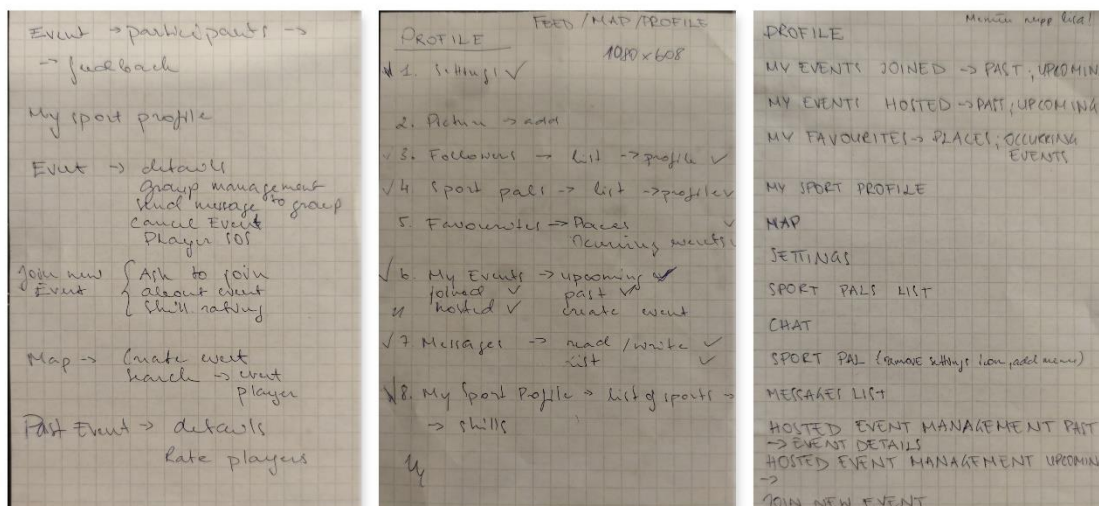 Event → participants →
→ feedback
My sport profile
Event → details
Group management
Send message to group
Cancel Event
Player SOS
Join new Event { Ask to join
About event
Skill rating
Map → Create event
Search → event
player
Past Event → details
Rate players
FEED / MAP / PROFILE
PROFILE
1080 x 608
1. Settings ✓
2. Picture → add
✓ 3. Followers → list → profile ✓
✓ 4 Sport pals → list → profile ✓
5. Favourites → Places ✓
events
✓ 6. My Events → upcoming ✓
joined ✓ past ✓
hosted ✓ create event
✓ 7 Messages → read / write ✓
list ✓
8. My Sport Profile → list of sports →
→ skills
PROFILE
MY EVENTS JOINED → PAST, UPCOMIN
MY EVENTS HOSTED → PAST, UPCOMING
MY FAVOURITES → PLACES, OCCURRING
EVENTS
MY SPORT PROFILE
MAP
SETTINGS
SPORT PALS LIST
CHAT
SPORT PAL (remove settings icon, add menu)
MESSAGES LIST
HOSTED EVENT MANAGEMENT PAST
→ EVENT DETAILS
HOSTED EVENT MANAGEMENT UPCOMIN
→
JOIN NEW EVENT